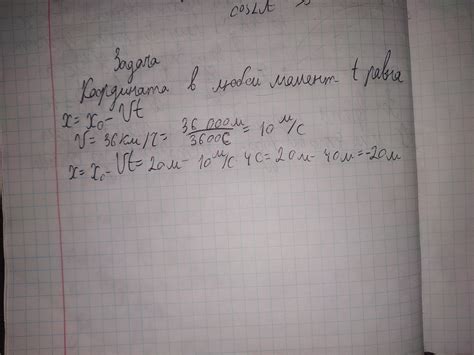 cos2t
Задача
Координата в любой момент t равна
x = x₀ - Vt
V = 36 км/ч = 36 000м/3600с = 10 м/с
x = x₀ - Vt = 20м - 10 м/с 4с = 20м - 40м = -20м